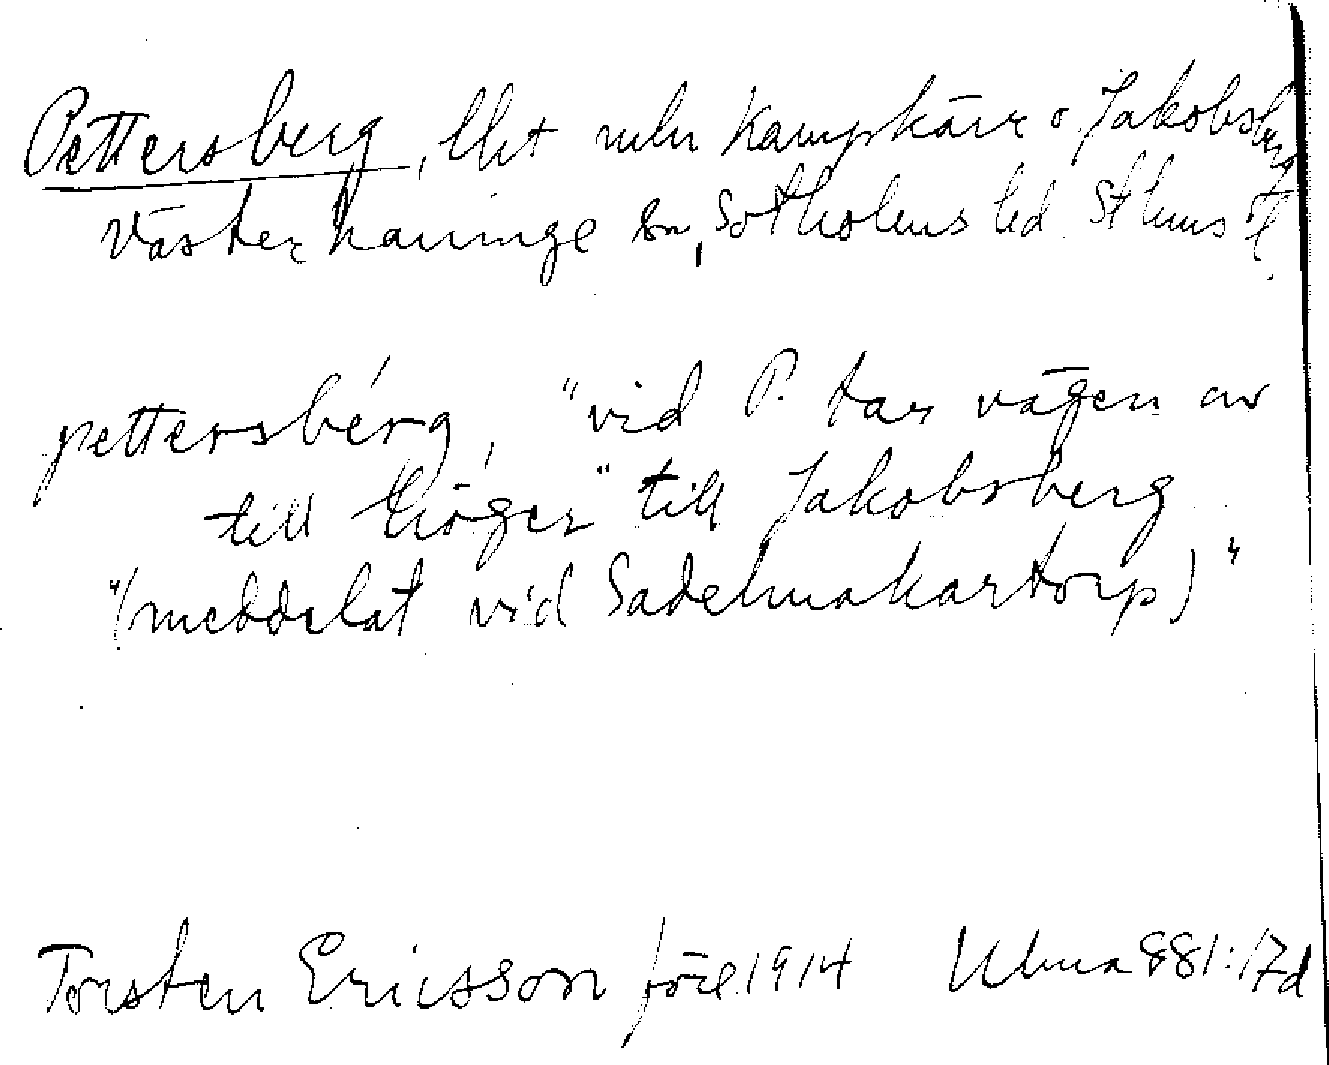 Pettersberg, lht mln Kampkärr o. Jakobsberg
Västerhaninge sn, Sotholms hd. Sthms l.
pettersbérg, "vid P. tar vägen av
till höger" till Jakobsberg
"(meddelat vid Sadelmakartorp)"
Torsten Ericsson före 1914 Ulma 881:17d